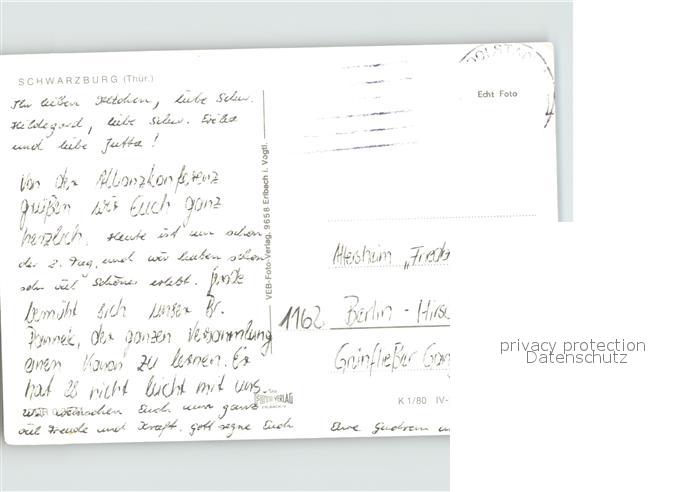 SCHWARZBURG (Thür.)
Ihr lieben Mädchen, liebe Schw.
Hildegard, liebe Schw. Erika
und liebe Jutta!
Von der Allianzkonferenz
grüßen wir Euch ganz
herzlich. Heute ist nun schon
der 2. Tag, und wir haben schon
sehr viel Schönes erlebt. Gerade
bemüht sich unser Br.
der ganzen Versammlung
einen Kanon zu lernen. Er
hat es nicht leicht mit uns.
Wir wünschen Euch nun ganz
viel Freude und Kraft. Gott segne Euch
Eure Gudrun
VEB-Foto-Verlag, 9658 Erlbach i. Vogtl.
Echt Foto
Altersheim „Friede
1162 Berlin - Hirsc
Grünfließer
K 1/80 IV-
privacy protection
Datenschutz